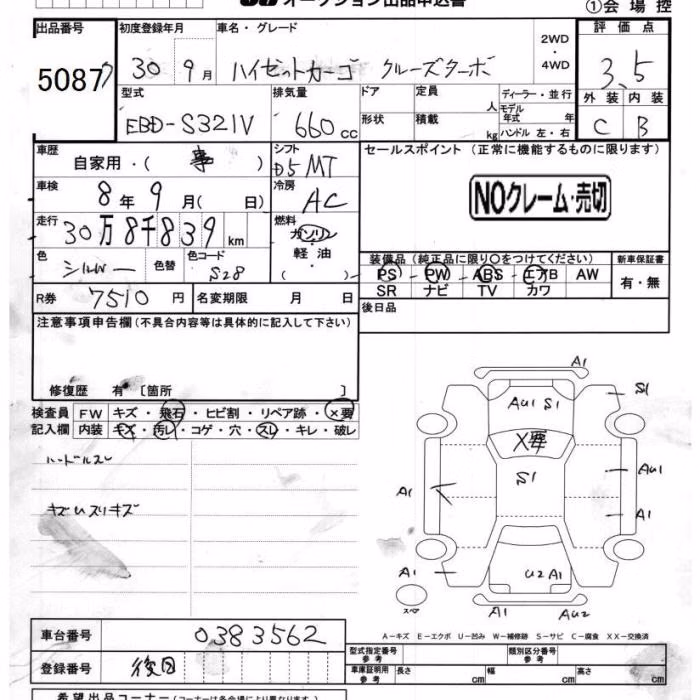 オークション出品申込書 ①会場控
出品番号 初度登録年月 車名・グレード 2WD・4WD 評価点
5087 30 9月 ハイゼットカーゴ クルーズターボ 3.5
型式 排気量 ドア 定員 人 ディーラー・並行 外装 内装
EBD-S321V 660cc 形状 積載 kg モデル年式 年 ハンドル 左・右 C B
車歴 自家用・( ) シフト D5MT セールスポイント (正常に機能するものに限ります)
車検 8年9月( 日) 冷房 AC NOクレーム・売切
走行 30万8千839km 燃料 ガソリン・軽油・( )
色 シルバー 色替 色コード S28 装備品 (純正品に限り〇をつけてください) 新車保証書
PS PW ABS エアB AW 有・無
SR ナビ TV カワ
R券 7510円 名変期限 月 日 後日品
注意事項申告欄 (不具合内容等は具体的に記入して下さい)
修復歴 有 [箇所 ]
検査員 FW キズ・飛石・ヒビ割・リペア跡・X要
記入欄 内装 キズ・汚レ・コゲ・穴・スレ・キレ・破レ
ハンドルスレ
A1
AU1 S1 S1
X要
S1 AU1
A1 A1
A1 U2 A1
スペア A1 AU2
A-キズ E-エクボ U-凹み W-補修跡 S-サビ C-腐食 XX-交換済
車台番号 0383562 型式指定番号 参考 類別区分番号 参考
登録番号 後日 車庫証明用 参考 長さ cm 幅 cm 高さ cm
希望出品コーナー (コーナーは各会場により異なります)